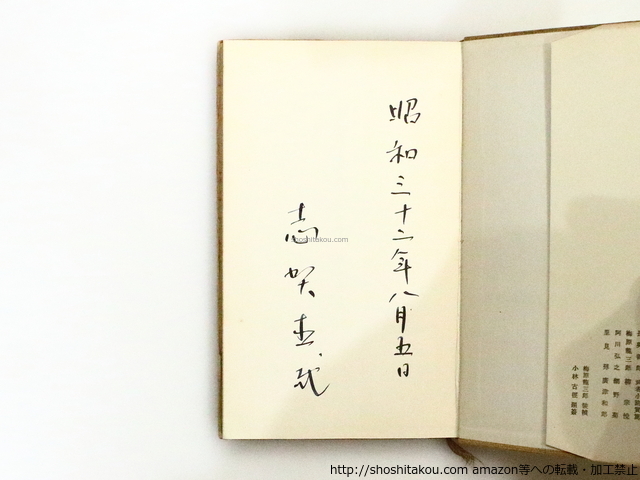 昭和三十二年八月五日
志賀直哉
shoshitakou.com
梅原龍三郎
阿川弘之
里見弴 廣津和郎
梅原龍三郎 装幀
小林古径 題簽
http://shoshitakou.com amazon等への転載・加工禁止